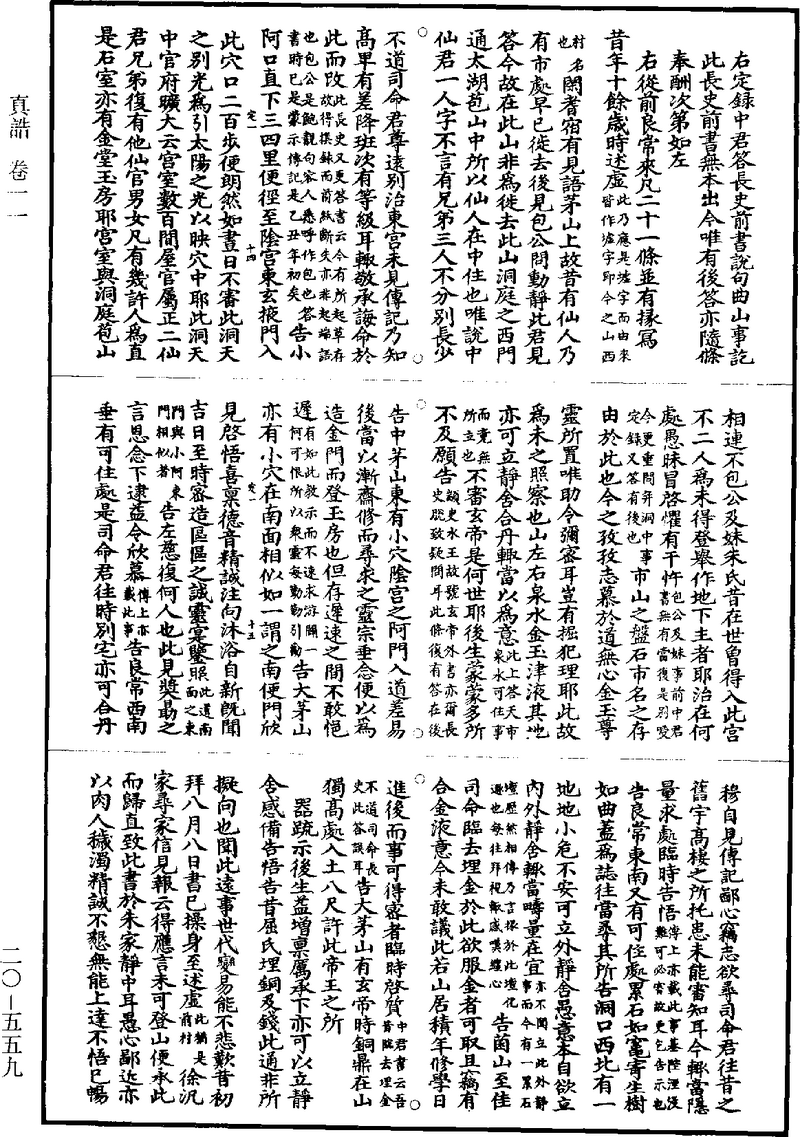 右定録中君答長史前書說句曲山事訖
此長史前書無本出今唯有後答亦隨條
奉酬次第如左
右從前良常來凡二十一條並有掾寫
昔年十餘歲時述虛此乃應是墟字而由來皆作虛字即今之山西
村名也閑耆宿有見語茅山上故昔有仙人乃
有市處早已徙去後見包公問動靜此君見
答今故在此山非為徙去此山洞庭之西門
通太湖苞山中所以仙人在中住也唯說中
仙君一人字不言有兄弟三人不分別長少
不道司命君尊遠別治東宮未見傳記乃知
高卑有差降班次有等級耳輙敬承誨命於
此而改此長史又更答書云今有所起草存故得撰錄而前紙斷失亦非起端語
也包公是鮑靚句容人悉呼作包也答書時已是蒙示傳記是乙丑年初矣告小
阿口直下三四里便徑至陰宮東玄掖門入
定一 十四
此穴口二百步便朗然如晝日不審此洞天
之別光為引太陽之光以映穴中耶此洞天
中官府曠大云宮室數百間屋官屬正二仙
君兄弟復有他仙官男女凡有幾許人為直
是石室亦有金堂玉房耶宮室與洞庭苞山
相連不包公及妹朱氏昔在世曾得入此宮
不二人為未得登舉作地下主者耶治在何
處愚昧冒啓懼有干忤包公及妹事前中君書無有當後是別受
今更重問并洞中事定録又答有後也市山之盤石市名之存
由於此也今之孜孜志慕於道無心金玉尊
靈所置唯助令彌密耳豈有掘犯理耶此故
為未之照察也山左右泉水金玉津液其地
亦可立靜舍合丹輙當以為意此上答天市泉水可住事
而竟無所立也不審玄帝是何世耶後生蒙蒙多所
不及願告顓史水王故號玄帝外書亦爾長史脫致疑問耳此條復有答在後
告中茅山東有小穴陰宮之阿門入道差易
後當以漸齋修而尋求之靈宗垂念便以為
造金門而登玉房也但存遲速之間不敢悒
遲有如此教示而不速求游闕一何可恨所以衆靈每勤勤引勸告大茅山
亦有小穴在南面相似如一謂之南便門欣
定一 十五
見啓悟喜稟德音精誠注向沐浴自新旣聞
吉日至時密造區區之誠靈宜鑒照此道南面之東
門與小阿東門相似者告左慈復何人也此見獎勗之
言思念下逮益令欣慕傳上亦載此事告良常西南
垂有可住處是司命君往時別宅亦可合丹
穆自見傳記鄙心竊志欲尋司命君往昔之
舊宇高棲之所托患未能審知耳今輙當隱
量求處臨時告悟傳上亦載此事基陛湮沒難可必當故更乞告示也
告良常東南又有可住處累石如竈寄生樹
如曲蓋為誌往當尋其所告洞口西北有一
地地小危不安可立外靜舍愚意本自欲立
內外靜舍輙當疇量在宜亦不聞立此外靜而今有一累石
壇歷然相傳乃言掾於此壇化遯也每往拜視輙感嘆纏心告菌山至佳
司命臨去埋金於此欲服金者可取且竊有
合金液意今未敢議此若山居積年修學日
進後而事可得密者臨時啓質中君書云吾昔臨去埋金
不道司命長史此答誤耳告大茅山有玄帝時銅鼎在山
獨高處入土八尺許此帝王之所
器疏示後生益增稟厲承下亦可以立靜
舍感備告悟告昔屈氏埋銅及錢此通非所
擬向也聞此遠事世代變易能不悲歎昔初
拜八月八日書已操身至述虛此猶是前村徐汎
家尋家信見報云得應言未可登山便承此
而歸直致此書於朱家靜中耳愚心鄙近亦
以肉人穢濁精誠不懇無能上達不悟已暢
真誥 卷一一
二〇—五五九